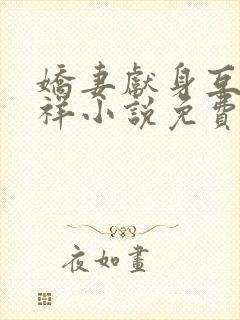 嬌妻獻身互
祥小說免費
夜如畫